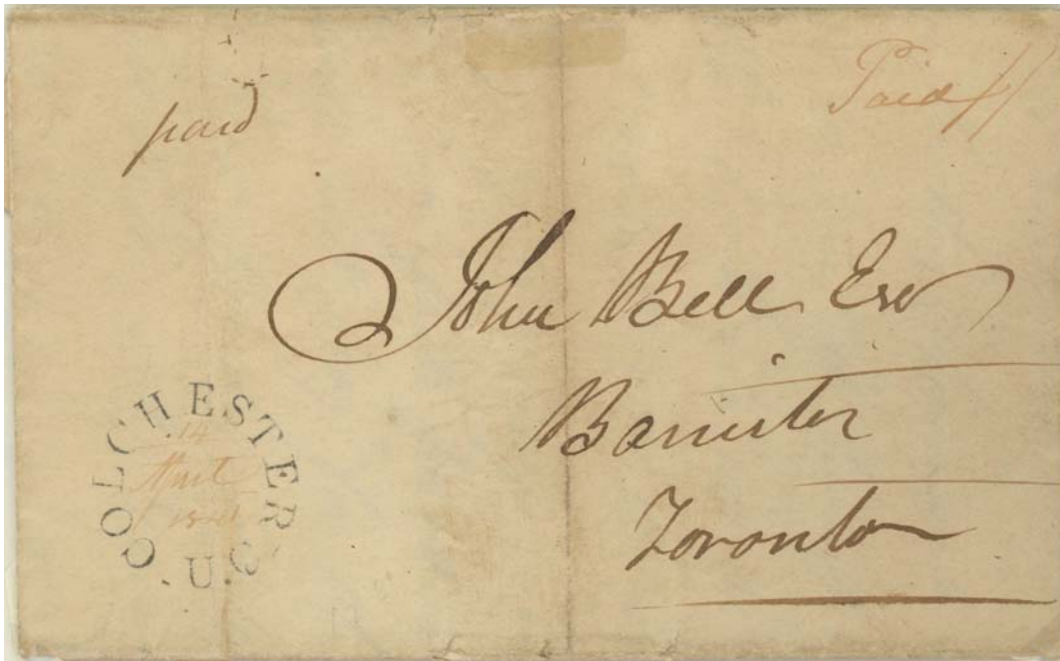 paid
Paid
John Bell Esq
Barrister
Toronto
COLCHESTER U.C.
14
April